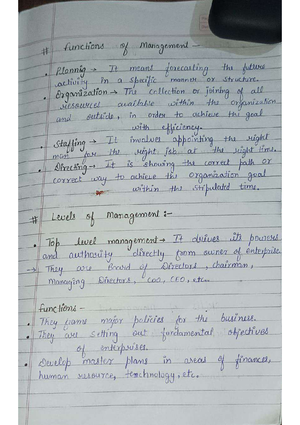 # Functions of Management :-
• Plannig → It meant forecasting the future
activity in a specific manner or structure.
• Organization → The collection or joining of all
resources available within the organization
and outside, in order to achieve the goal
with efficiency.
• Staffing → It involves appointing the right
man for the right job at the right time.
• Directing → It is showing the correct path or
correct way to achieve the organization goal
within the stipulated time.
# Levels of Management :-
• Top level management → It drives its powers
and authority directly from owner of enterprise
→ They are Board of Directors, chairman,
Managing Directors, COO, CEO, etc.
Functions -
• They frame major policies for the business.
• They are setting out fundamental objectives
of enterprises.
• Develop master plans in areas of finances,
human resource, technology, etc.